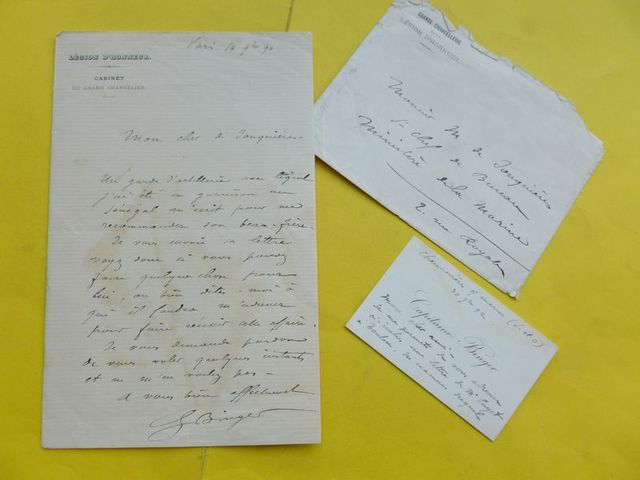 Paris 14 9bre 90
LÉGION D'HONNEUR.
CABINET
DU GRAND CHANCELIER.
Mon cher de Jonquières.
Un garde d'artillerie avec lequel
j'ai été en garnison au
Sénégal m'écrit pour me
recommander son beau-frère.
Je vous envoie sa lettre
voyez donc si vous pouvez
faire quelque chose pour
lui, ou bien dites-moi à
qui il faudra m'adresser
pour faire réussir cette affaire.
Je vous demande pardon
de vous voler quelques instants
et ne m'en voulez pas.
A vous bien affectueusement
G Binger
GRANDE CHANCELLERIE
LÉGION D'HONNEUR
Monsieur M. de Jonquières
S/chef de Bureau
Ministère de la Marine
2. rue Royale
Capitaine Binger
ami de vous adresser
une lettre de Mr
à Toulon.